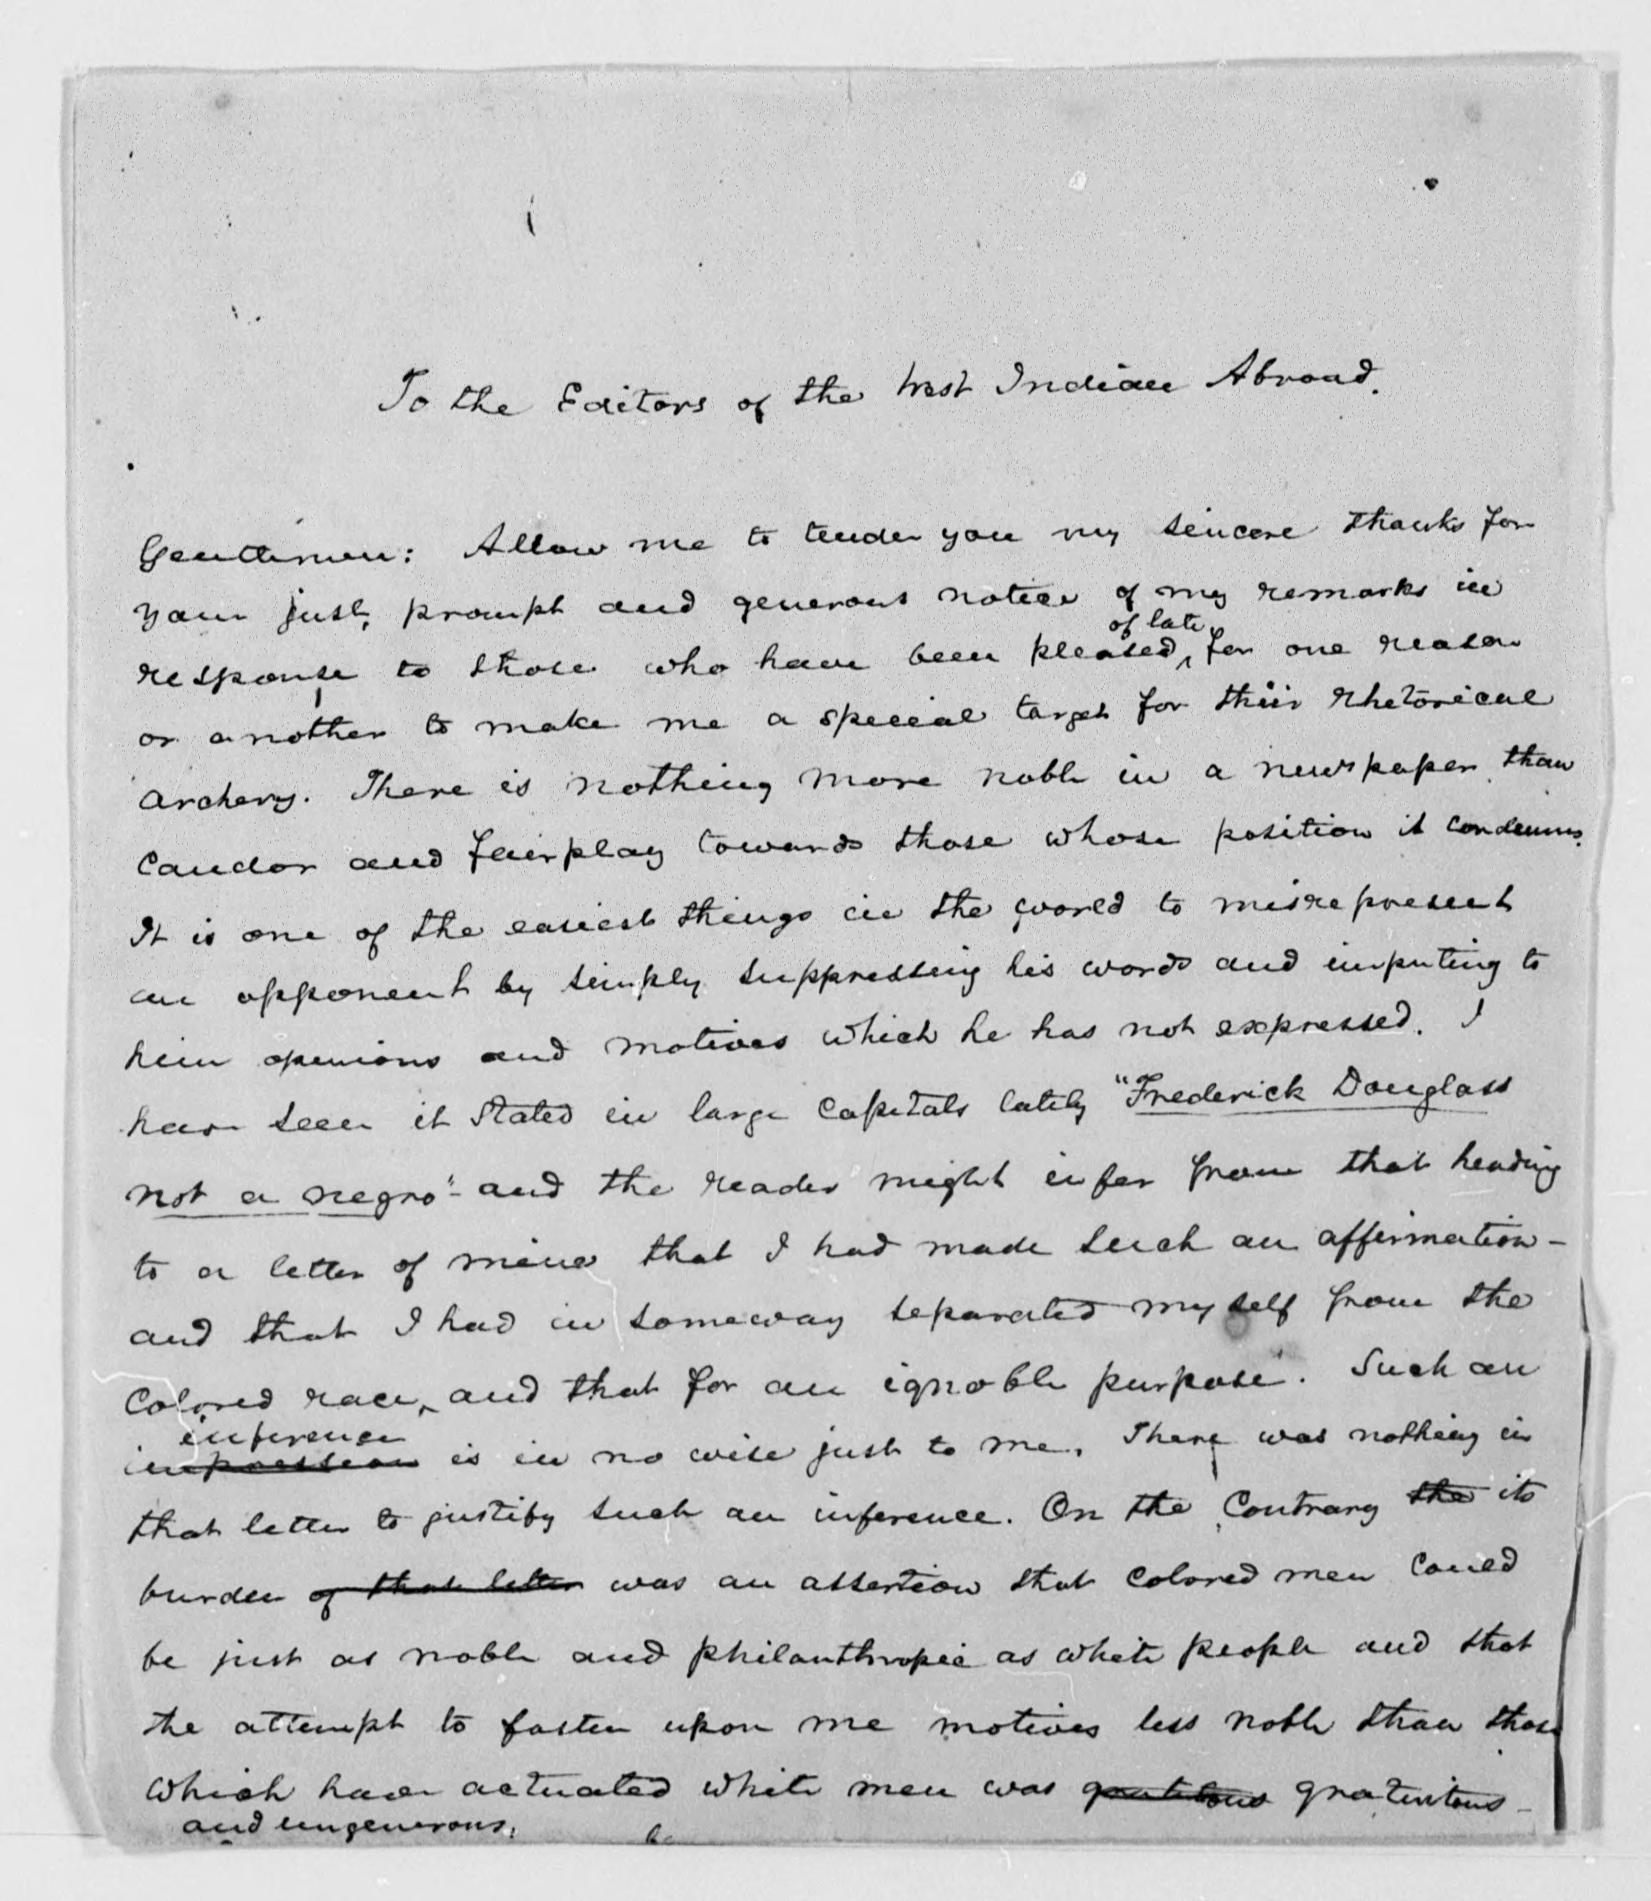 To the Editors of the West Indian Abroad.
Gentlemen: Allow me to tender you my sincere thanks for
your just, prompt and generous notice of my remarks in
of late
response to those who have been pleased, for one reason
or another to make me a special target for their rhetorical
archery. There is nothing more noble in a newspaper than
candor and fairplay towards those whose position it condemns.
It is one of the easiest things in the world to misrepresent
an opponent by simply suppressing his words and imputing to
him opinions and motives which he has not expressed. I
have seen it stated in large capitals lately "Frederick Douglass
not a negro" - and the reader might infer from that heading
to a letter of mine that I had made such an affirmation -
and that I had in someway separated myself from the
Colored race, and that for an ignoble purpose. Such an
inference
impression is in no wise just to me. There was nothing in
that letter to justify such an inference. On the Contrary the its
burden of that letter was an assertion that colored men could
be just as noble and philanthropic as white people and that
the attempt to fasten upon me motives less noble than those
which have actuated white men was gratitous gratuitous -
and ungenerous.